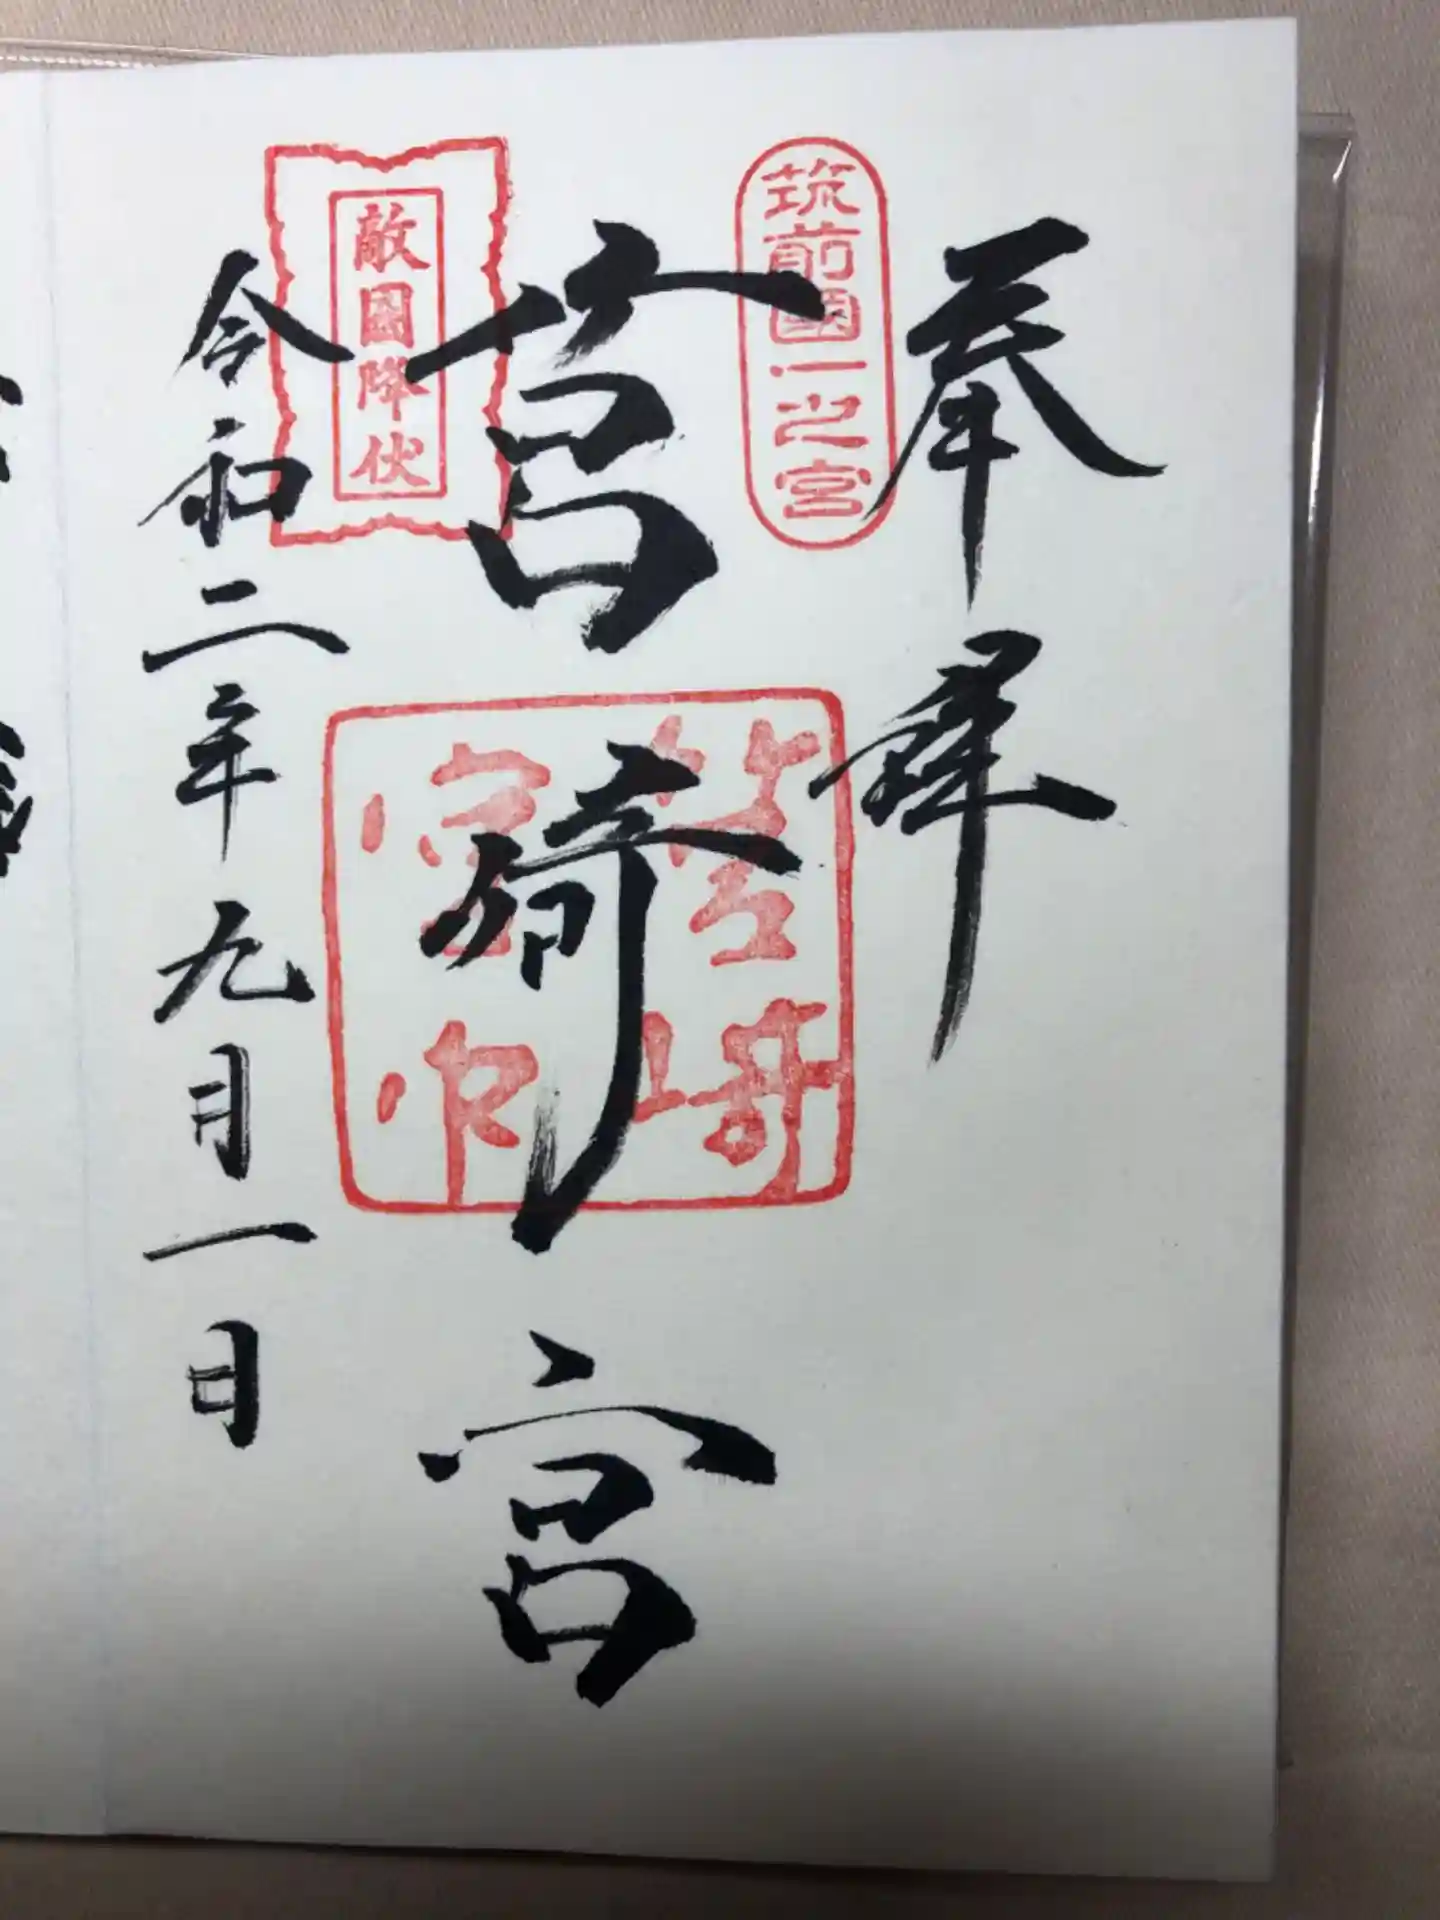 奉拝
筑前國一之宮
筥崎宮
敵國降伏
筥崎
宮印
令和二年九月一日